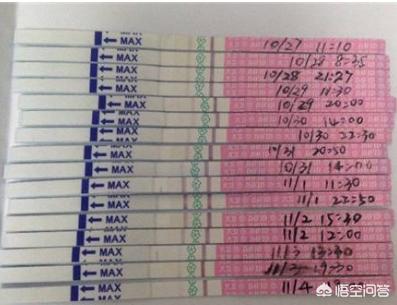 MAX 10/27 11:10
MAX 10/28 8:35
MAX 10/28 21:27
MAX 10/29 11:30
MAX 10/29 20:00
MAX 10/30 14:00
MAX 10/30 22:30
MAX 10/31 20:50
MAX 10/31 14:00
MAX 11/1 11:30
MAX 11/1 22:50
MAX 11/2 15:30
MAX 11/2 12:00
MAX 11/3 13:30
MAX 11/3 19:30
MAX 11/4
悟空问答